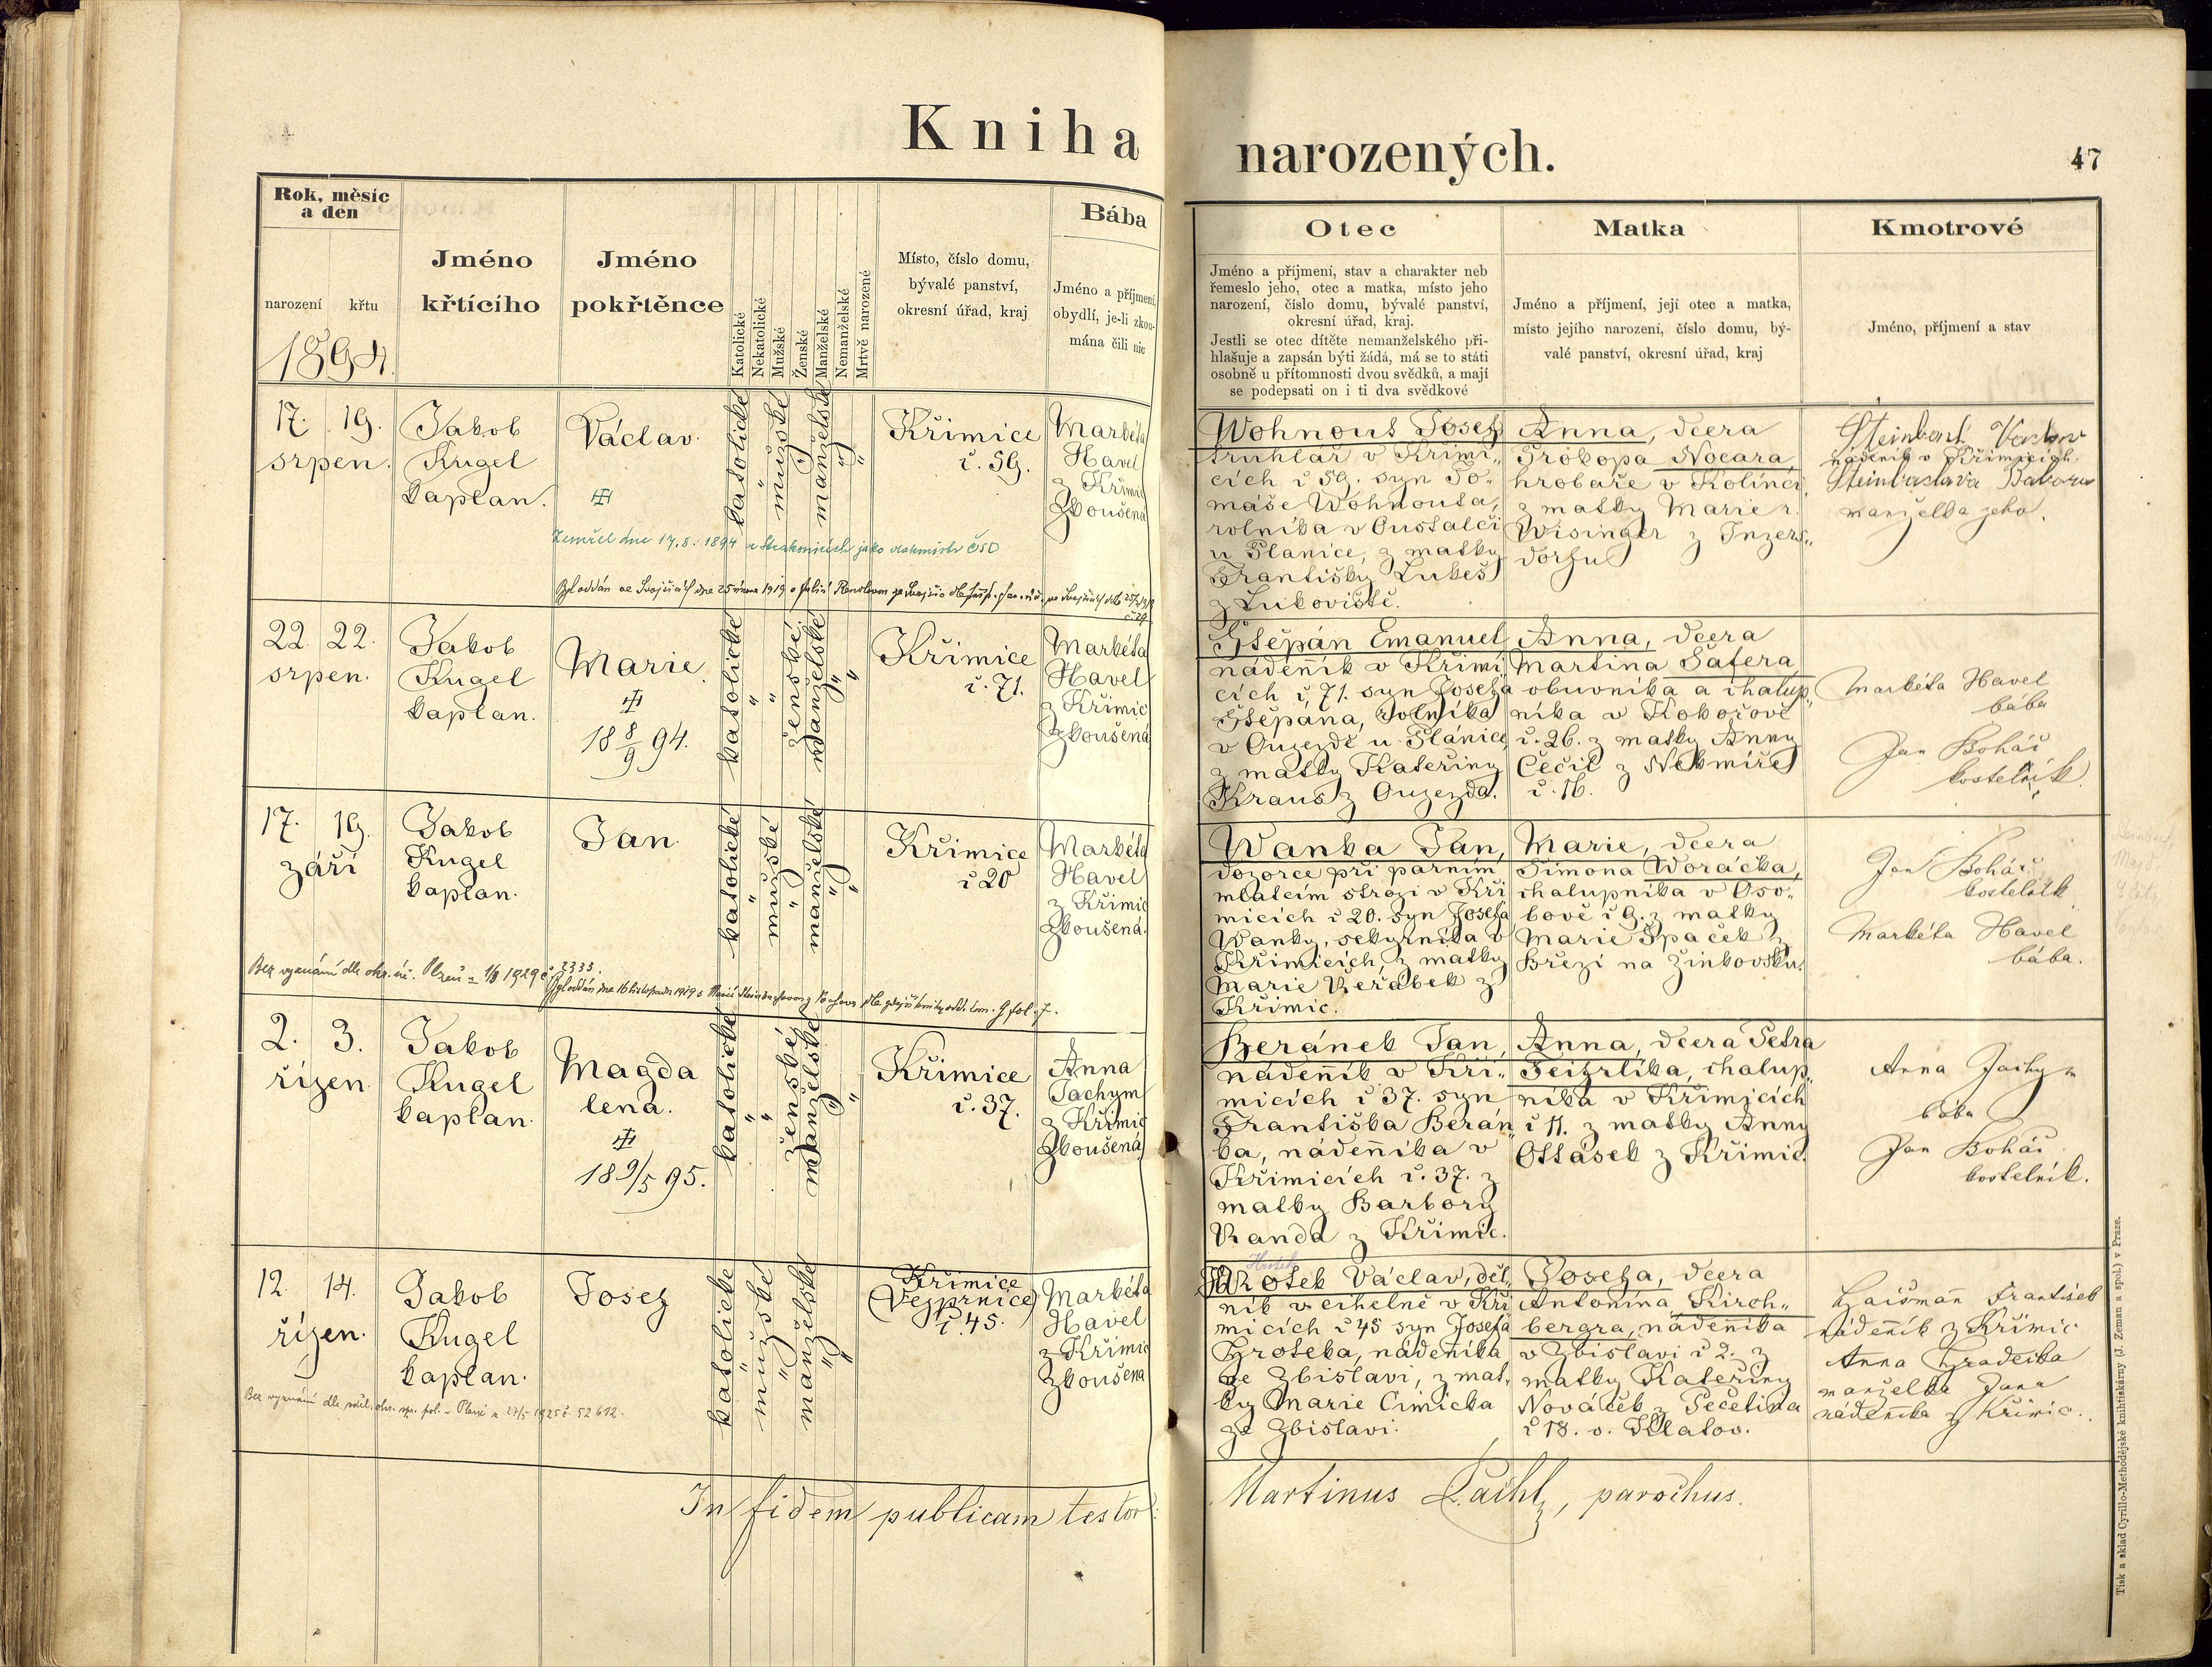 Kniha narozených.
47
Rok, měsíc
a den
narození
křtu
1894.
Jméno
křtícího
Jméno
pokřtěnce
Katolické
Nekatolické
Mužské
Ženské
Manželské
Nemanželské
Mrtvě narozené
Místo, číslo domu,
bývalé panství,
okresní úřad, kraj
Bába
Jméno a příjmení,
obydlí, je-li zkou-
mána čili nic
Otec
Jméno a příjmení, stav a charakter neb
řemeslo jeho, otec a matka, místo jeho
narození, číslo domu, bývalé panství,
okresní úřad, kraj.
Jestli se otec dítěte nemanželského při-
hlašuje a zapsán býti žádá, má se to státi
osobně u přítomnosti dvou svědků, a mají
se podepsati on i ti dva svědkové
Matka
Jméno a příjmení, její otec a matka,
místo jejího narození, číslo domu, bý-
valé panství, okresní úřad, kraj
Kmotrové
Jméno, příjmení a stav
17. 19.
srpen.
Jakob
Kugel
kaplan.
Václav.
katolické
"
mužské
"
manželské
"
"
Křimice
č. 59.
Markéta
Havel
z Křimic
Zkoušená
Zemřel dne 17.8. 1894 v Strakonicích jako vlakmistr ČSD
Byl oddán ve Svojšicích dne 25 února 1919 s
Wohnout Josef
truhlář v Křimi„
cích č 59. syn To„
máše Wohnouta,
rolníka v Oustalči
u Planice, z matky
Františky Lukeš
z Lukoviště.
Anna, dcera
Prokopa Nocara
hrobaře v Kolinci,
z matky Marie r.
Wisinger z Inzers„
dorfu
nádeník v Křimicích
manželka jeho.
22. 22.
srpen.
Jakob
Kugel
kaplan.
Marie.
18 8/9 94.
katolické
"
"
ženské
manželské
"
"
Křimice
č. 71.
Markéta
Havel
z Křimic
Zkoušená
Štěpán Emanuel
nádenník v Křimi„
cích č, 71. syn Josefa
Štěpána, rolníka
v Oujezdě u Plánice
z matky Kateřiny
Kraus z Oujezda.
Anna, dcera
Martina Šafera
obuvníka a chalup„
níka v Kokořově
č. 26. z matky Anny
Čečil z Nekmíře
č. 16.
Markéta Havel
bába
Jan Boháč
kostelník
17. 19.
září
Jakob
Kugel
kaplan.
Jan.
katolické
"
mužské
"
manželské
"
"
Křimice
č 20
Markéta
Havel
z Křimic
Zkoušená.
Bez vyznání dle okr. úř. Plzeň z 1929 č 2333.
Byl oddán dne 16 listopadu 1919 s Marií
Wanka Jan,
dozorce při parním
mlatcím stroji v Kři
micích č 20. syn Josefa
Wanky, sekyrníka v
Křimicích, z matky
Marie Jeřábek z
Křimic.
Marie, dcera
Šimona Woráčka,
chalupníka v Oso„
bově č 9. z matky
Marie Špaček z
Březí na Žinkovsku.
Jan Boháč
kostelník
Markéta Havel
bába.
2. 3.
říjen
Jakob
Kugel
kaplan.
Magda
lena.
18 9/5 95.
katolické
"
"
ženské
manželské
"
"
Křimice
č. 37.
Anna
Jachym
z Křimic
Zkoušená
Beránek Jan,
nádenník v Kři„
micích č 37. syn
Františka Berán„
ka, nádenníka v
Křimicích č. 37. z
matky Barbory
Randa z Křimic.
Anna, dcera Petra
Feizrlíka, chalup„
níka v Křimicích
č 11. z matky Anny
Ottásek z Křimic.
Anna Jachym
bába
Jan Boháč
kostelník.
12. 14.
říjen.
Jakob
Kugel
kaplan.
Josef
katolické
"
mužské
"
manželské
"
"
Křimice
(Vejprnice)
č. 45.
Markéta
Havel
z Křimic
Zkoušena
Bez vyznání dle 27/5 1925 č. 52612.
Hrotek Václav, děl„
ník v cihelně v Kři
micích č 45 syn Josefa
Hroteka, nádeníka
ze Zbislavi, z mat„
ky Marie Cimicka
ze Zbislavi.
Josefa, dcera
Antonína Kirch„
bergra, nádenníka
v Zbislavi č 2. z
matky Kateřiny
Nováček z Pečetína
č 18. o. Klatov.
František
nádenník z Křimic
Anna Hradecka
manželka Jana
nádenníka z Křimic.
In fidem publicam testor:
Martinus Pachl, parochus.
Tisk a sklad Cyrillo-Methodějské knihtiskárny (J. Zeman a spol.) v Praze.